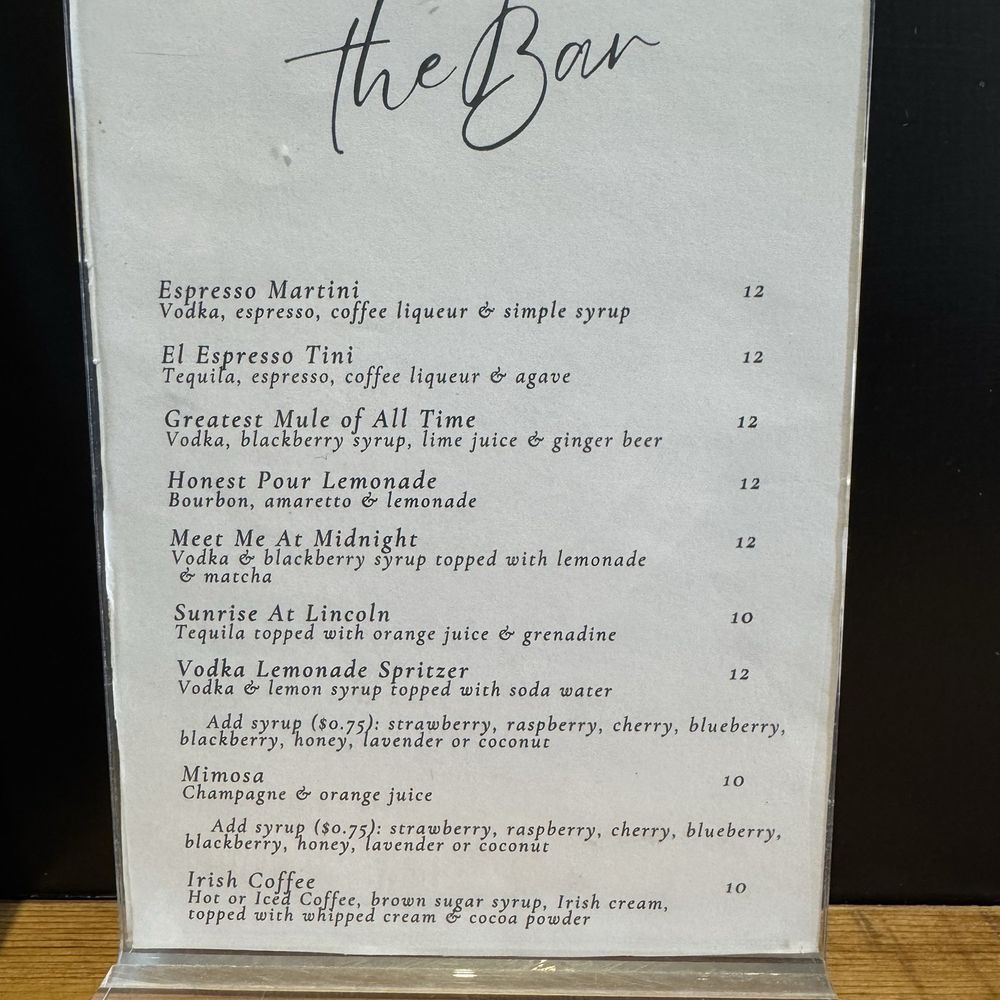 the Bar
Espresso Martini 12
Vodka, espresso, coffee liqueur & simple syrup
El Espresso Tini 12
Tequila, espresso, coffee liqueur & agave
Greatest Mule of All Time 12
Vodka, blackberry syrup, lime juice & ginger beer
Honest Pour Lemonade 12
Bourbon, amaretto & lemonade
Meet Me At Midnight 12
Vodka & blackberry syrup topped with lemonade
& matcha
Sunrise At Lincoln 10
Tequila topped with orange juice & grenadine
Vodka Lemonade Spritzer 12
Vodka & lemon syrup topped with soda water
Add syrup ($0.75): strawberry, raspberry, cherry, blueberry,
blackberry, honey, lavender or coconut
Mimosa 10
Champagne & orange juice
Add syrup ($0.75): strawberry, raspberry, cherry, blueberry,
blackberry, honey, lavender or coconut
Irish Coffee 10
Hot or Iced Coffee, brown sugar syrup, Irish cream,
topped with whipped cream & cocoa powder